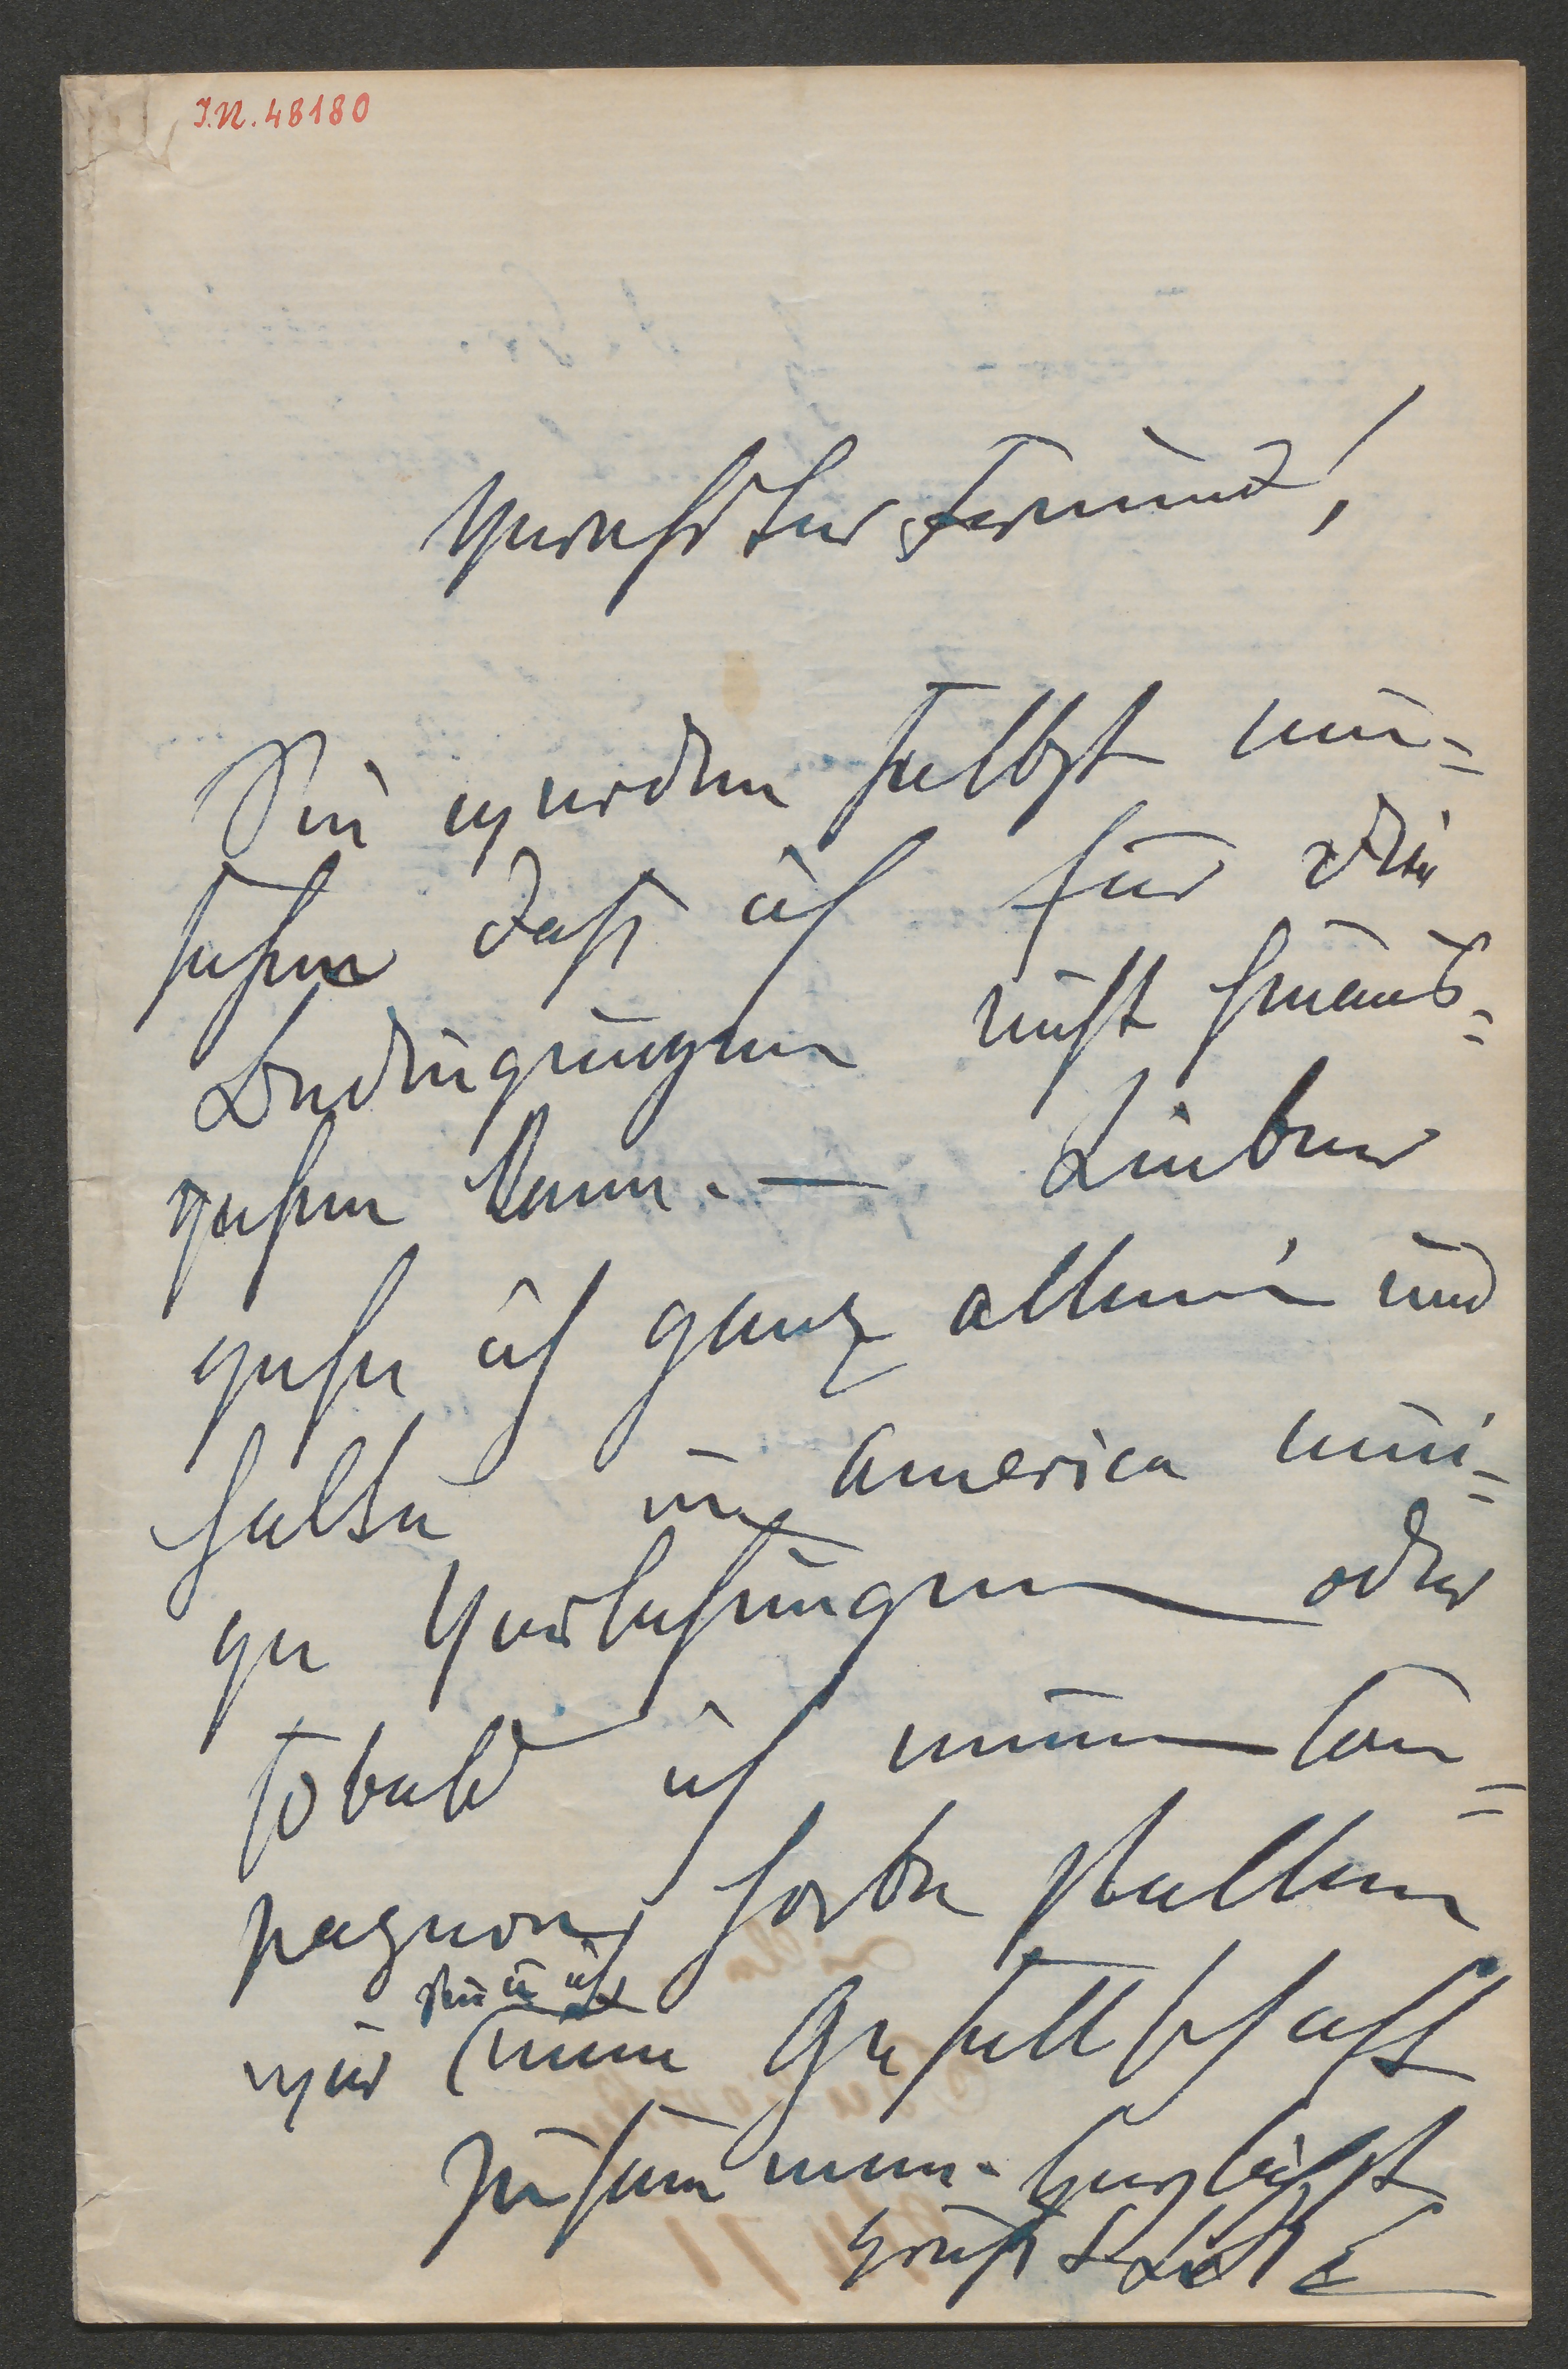 I.N. 48180
Verehrter Freund!
Sie werden selbst ein=
sehen daß ich für die
Bedingungen nicht hinaus=
gehen kann. — Lieber
gehe ich ganz allein und
halte in America eini=
ge Vorlesungen oder
sobald ich einen Com=
pagnon habe stellen
wir eine Gesellschaft
zusammen. Herzlichst
grüßt